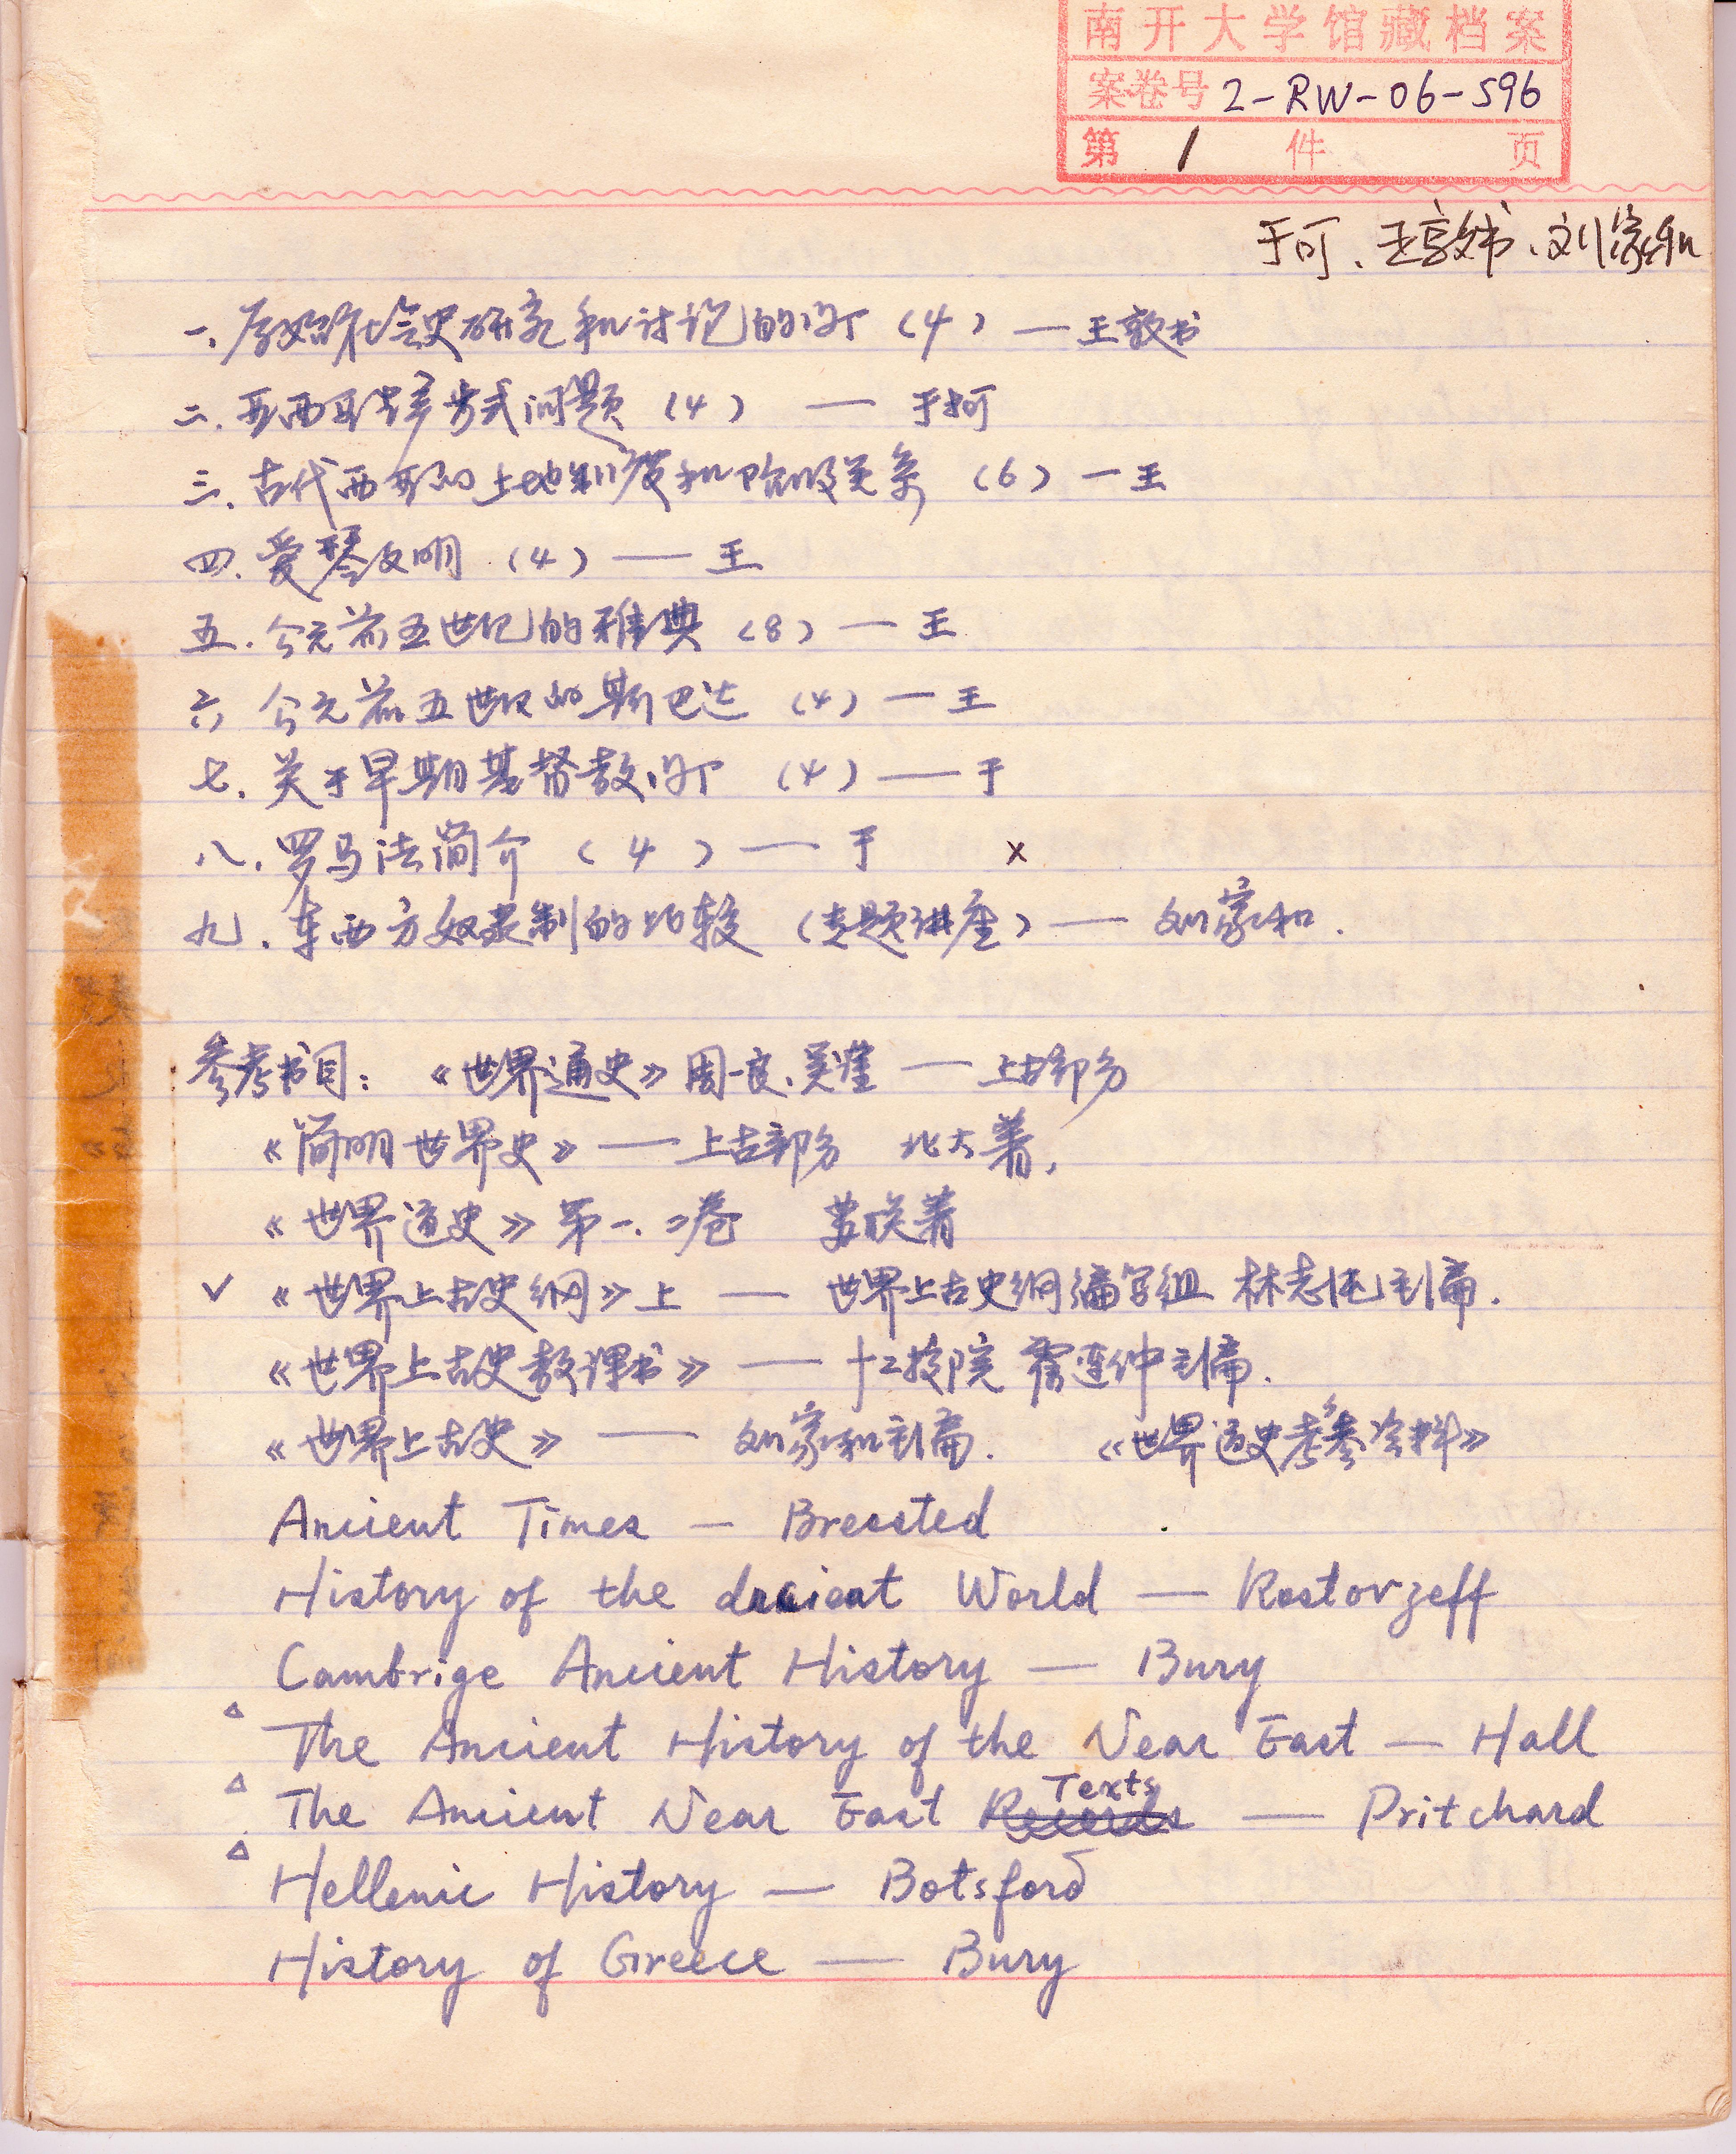 南开大学馆藏档案
案卷号 2-RW-06-596
第 1 件 页
于可、王敦书、刘家和
一、原始社会史研究和讨论的问丁（4）— 王敦书
二、亚西亚生产方式问题（4）— 于可
三、古代西亚的土地制度和阶级关系（6）— 王
四、爱琴文明（4）— 王
五、公元前五世纪的雅典（8）— 王
六 公元前五世纪的斯巴达（4）— 王
七、关于早期基督教问丁（4）— 于
八、罗马法简介（4）— 于 ×
九、东西方奴隶制的比较（专题讲座）— 刘家和.
参考书目：《世界通史》周一良、吴 — 上古部分
《简明世界史》— 上古部分 北大著,
《世界通史》第一、二卷 苏联著
✓《世界上古史纲》上 — 世界上古史纲编写组 林志纯主编.
《世界上古史教课书》— 十二校院 霍连仲主编.
《世界上古史》— 刘家和主编. 《世界通史参考资料》
Ancient Times — Breasted
History of the Ancient World — Rostovzeff
Cambrige Ancient History — Bury
△ The Ancient History of the Near East — Hall
△ The Ancient Near East Texts — Pritchard
△ Hellenic History — Botsford
History of Greece — Bury